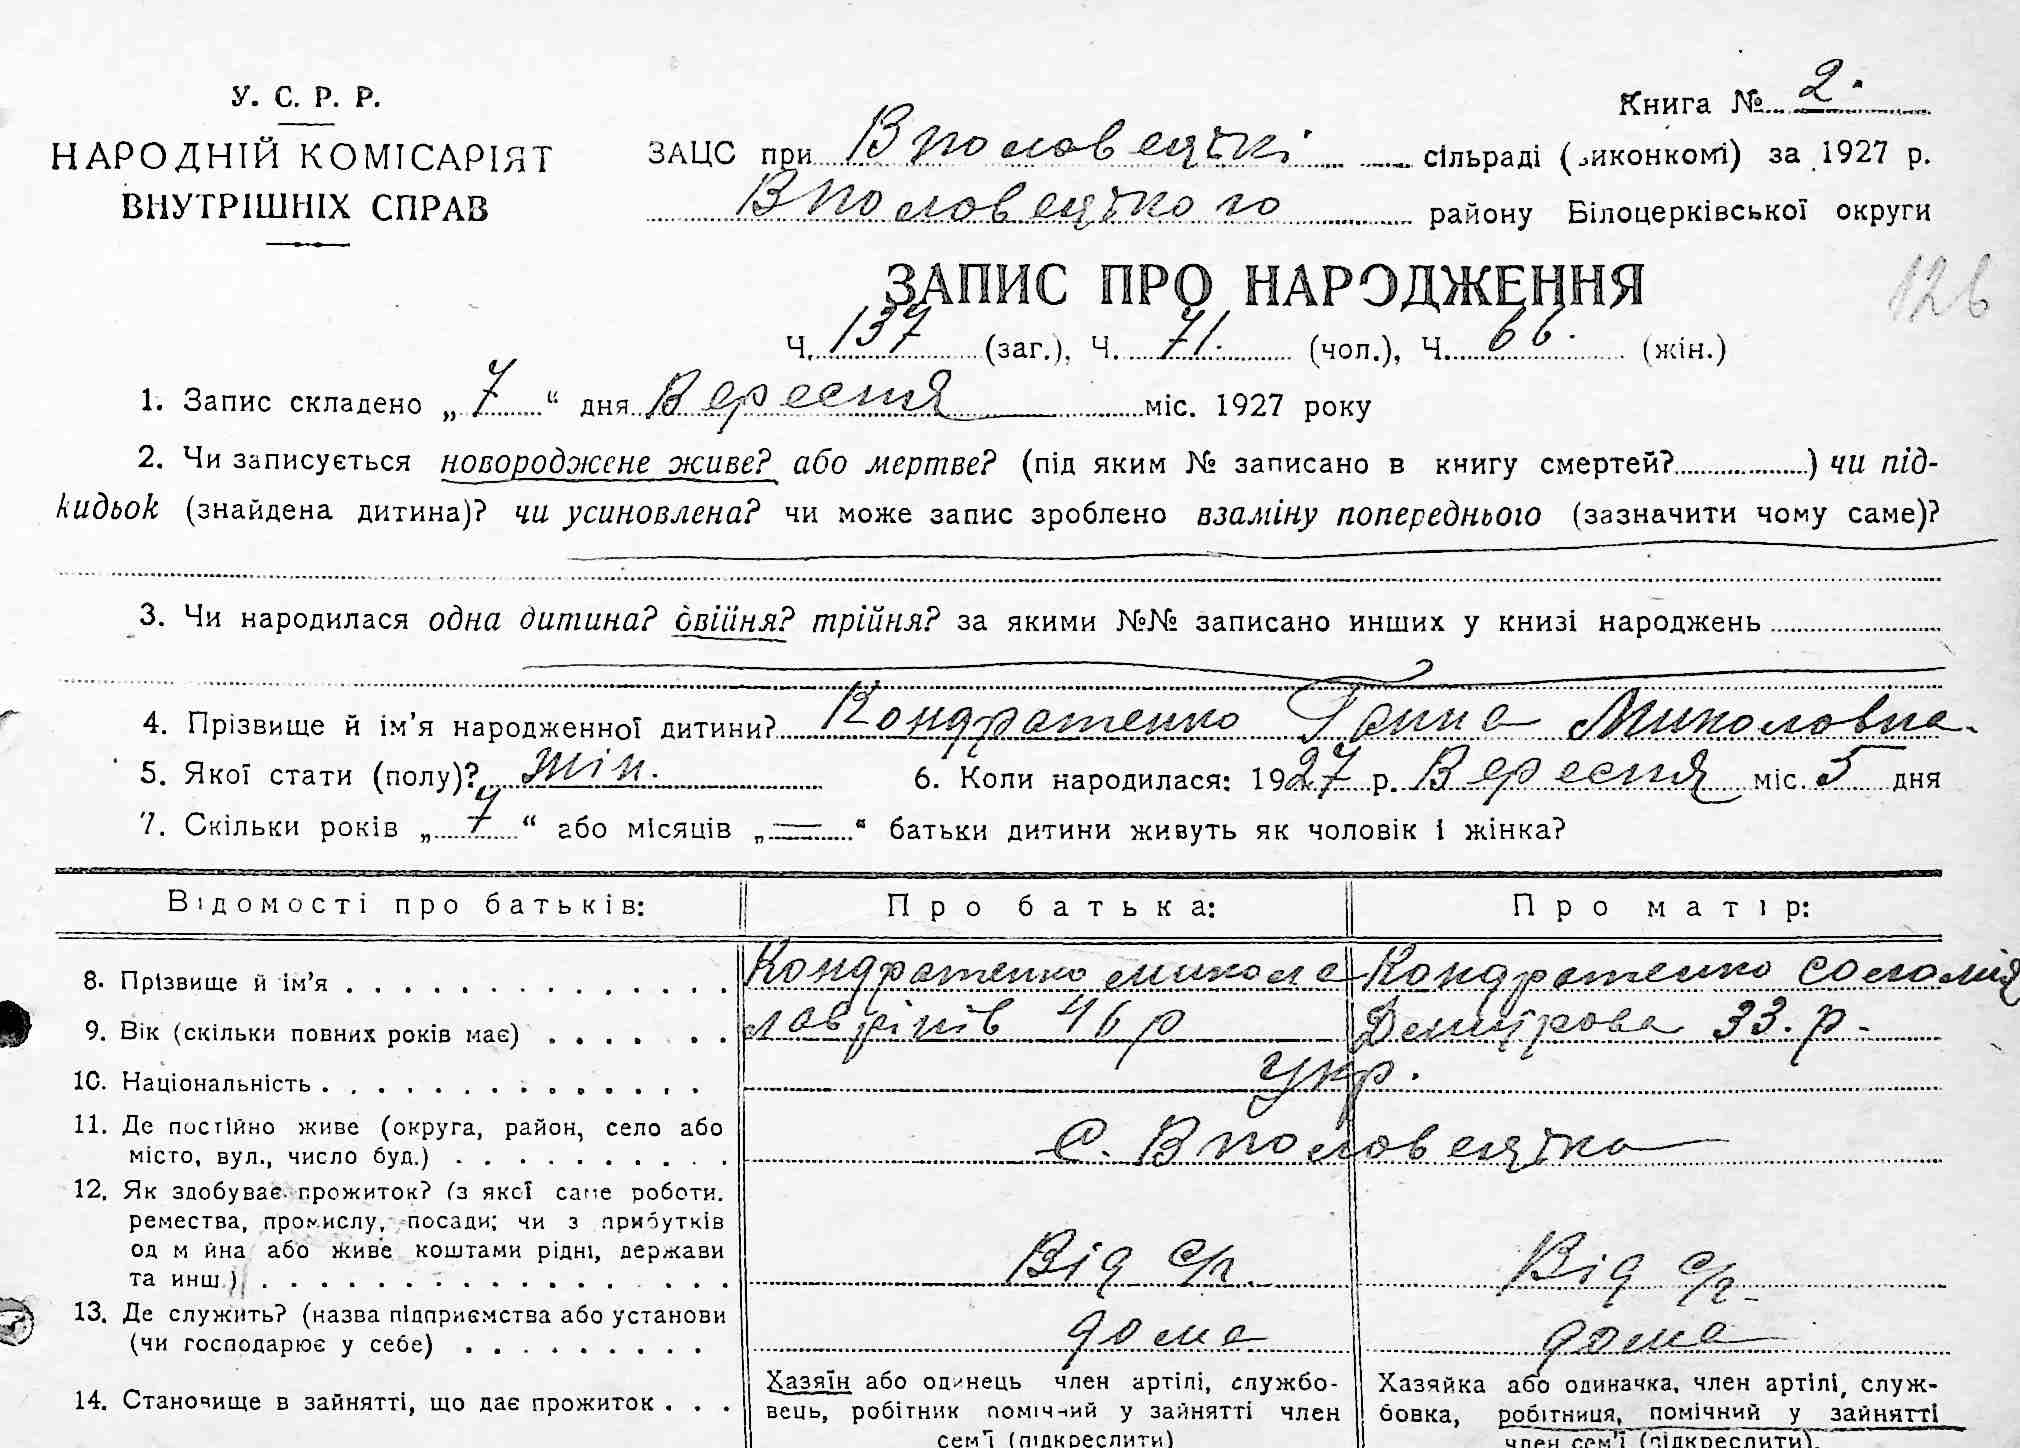 У. С. Р. Р.
НАРОДНІЙ КОМІСАРІЯТ
ВНУТРІШНІХ СПРАВ
Книга № 2.
ЗАЦС при Вполовецькі сільраді (виконкомі) за 1927 р.
Вполовецького району Білоцерківської округи
ЗАПИС ПРО НАРОДЖЕННЯ
126
Ч. 137 (заг.), Ч. 71. (чол.), Ч. 66. (жін.)
1. Запис складено „ 7 “ дня Вересня міс. 1927 року
2. Чи записується новороджене живе? або мертве? (під яким № записано в книгу смертей?..........) чи під-
кидьок (знайдена дитина)? чи усиновлена? чи може запис зроблено взаміну попереднього (зазначити чому саме)?
3. Чи народилася одна дитина? двійня? трійня? за якими №№ записано инших у книзі народжень
4. Прізвище й ім’я народженної дитини? Кондратенко Ганна Миколовна.
5. Якої стати (полу)? Жін. 6. Коли народилася: 1927 р. Вересня міс. 5 дня
7. Скільки років „ 7 “ або місяців „ = “ батьки дитини живуть як чоловік і жінка?
Відомості про батьків: Про батька: Про матір:
8. Прізвище й ім’я Кондратенко Микола Кондратенко Соломія
9. Вік (скільки повних років має) Лаврінів 46 р Демидова 33. р.
10. Національність Укр.
11. Де постійно живе (округа, район, село або
місто, вул., число буд.) С. Вполовецька
12. Як здобуває прожиток? (з якої саме роботи.
ремества, промислу, посади; чи з прибутків
од м йна або живе коштами рідні, держави
та инш.) Від с/г. Від с/г.
13. Де служить? (назва підприємства або установи
(чи господарює у себе) дома дома
14. Становище в зайнятті, що дає прожиток
Хазяїн або одинець член артілі, службо-
вець, робітник помічний у зайнятті член
сем’ї (підкреслити)
Хазяйка або одиначка, член артілі, служ-
бовка, робітниця, помічний у зайнятті
член сем’ї (підкреслити).